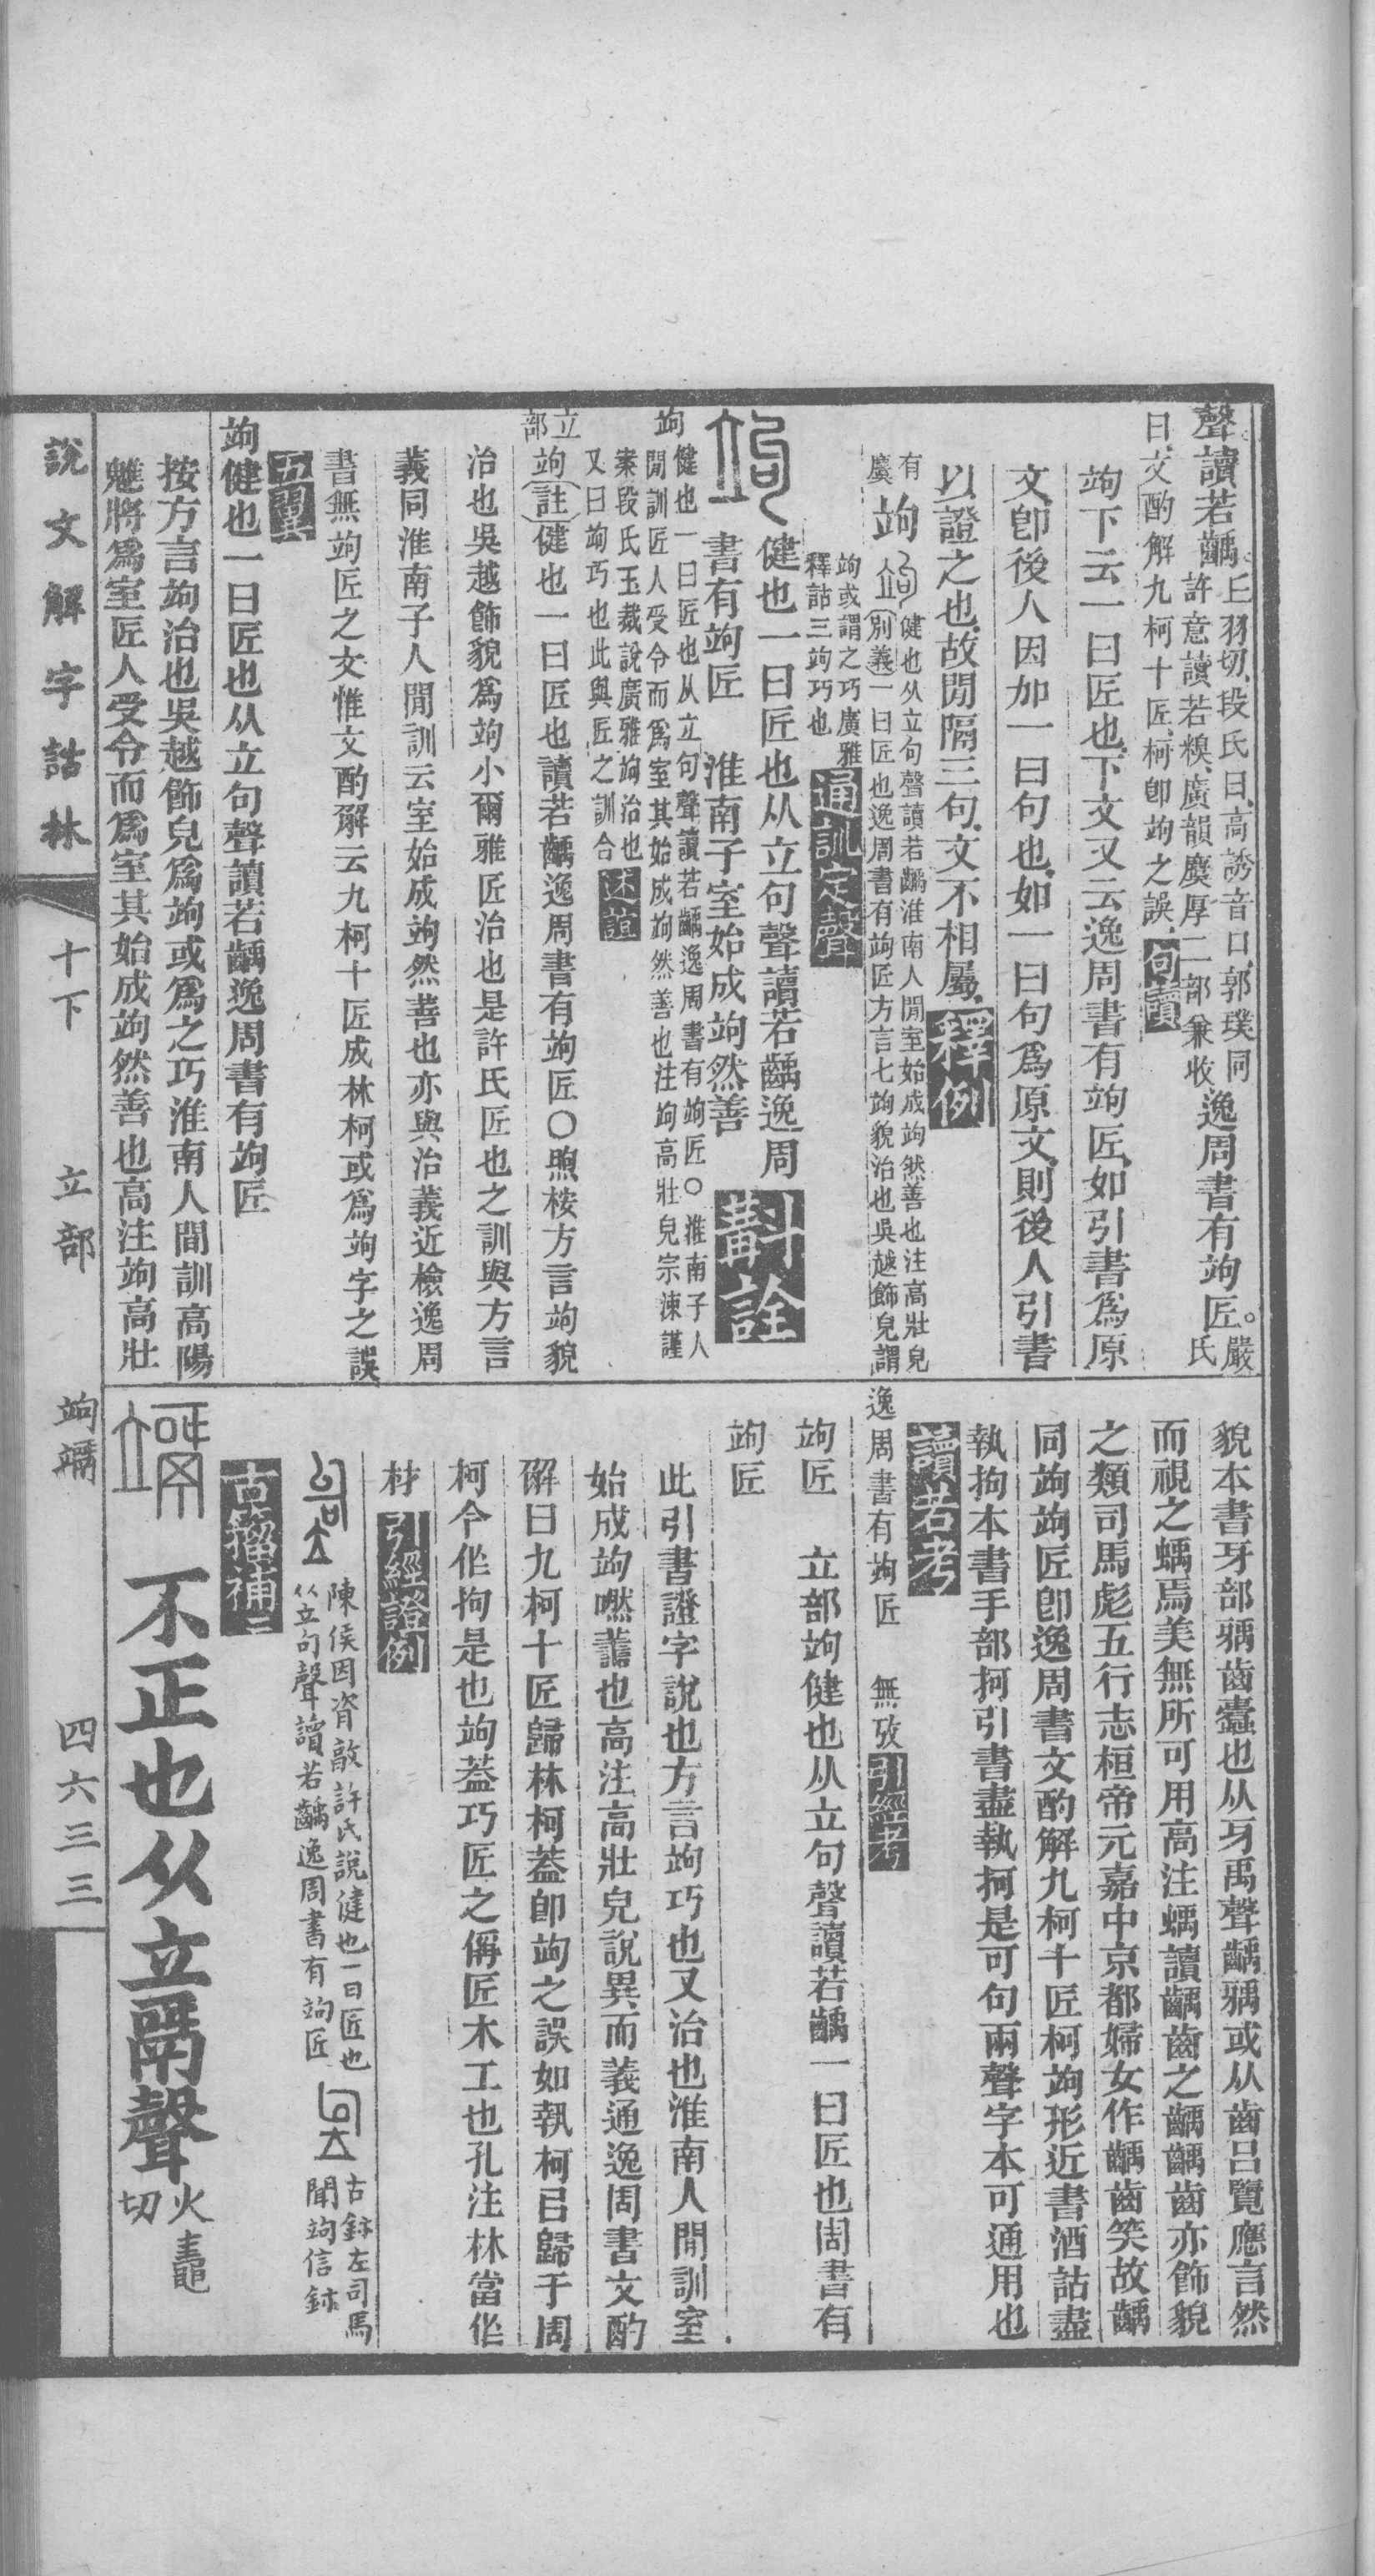 聲。讀若齲。丘羽切、段氏曰、高誘音口、郭璞同
許意讀若糗、廣韻麌厚二部兼收逸周書有竘匠。嚴氏
曰、文酌解九柯十匠、柯卽竘之誤、句讀
竘下云一曰匠也、下文又云逸周書有竘匠、如引書爲原
文、卽後人因加一曰句也、如一曰句爲原文、則後人引書
以證之也、故閒隔三句、文不相屬、釋例
有麌 竘 健也从立句聲讀若齲淮南人閒室始成竘然善也注高壯皃
別義一曰匠也逸周書有竘匠方言七竘貌治也吳越飾皃謂
竘或謂之巧廣雅
釋詁三竘巧也通訓定聲
健也一曰匠也从立句聲讀若齲逸周
書有竘匠 淮南子室始成竘然善 斠詮
竘 健也一曰匠也从立句聲讀若齲逸周書有竘匠○淮南子人
閒訓匠人受令而爲室其始成竘然善也注竘高壯皃宗涑謹
案段氏玉裁說廣雅竘治也
又曰竘巧也此與匠之訓合述誼
立部 竘註健也一曰匠也讀若齲逸周書有竘匠○煦桉方言竘貌
治也吳越飾貌爲竘小爾雅匠治也是許氏匠也之訓與方言
義同淮南子人閒訓云室始成竘然善也亦與治義近檢逸周
書無竘匠之文惟文酌解云九柯十匠成林柯或爲竘字之誤
五翼
竘健也一曰匠也从立句聲讀若齲逸周書有竘匠
按方言竘治也吳越飾皃爲竘或爲之巧淮南人間訓高陽
魋將爲室匠人受令而爲室其始成竘然善也高注竘高壯
貌本書牙部㺄齒蠹也从牙禹聲齲㺄或从齒呂覽應言然
而視之蝺焉美無所可用高注蝺讀齲齒之齲齲齒亦飾貌
之類司馬彪五行志桓帝元嘉中京都婦女作齲齒笑故齲
同竘竘匠卽逸周書文酌解九柯十匠柯竘形近書酒誥盡
執拘本書手部抲引書盡執抲是可句兩聲字本可通用也
讀若考
逸周書有竘匠 無攷引經考
竘匠 立部竘健也从立句聲讀若齲一曰匠也周書有
竘匠
此引書證字說也方言竘巧也又治也淮南人閒訓室
始成竘嘫譱也高注高壯皃說異而義通逸周書文酌
解曰九柯十匠歸林柯蓋卽竘之誤如執柯㠯歸于周
柯今作拘是也竘蓋巧匠之偁匠木工也孔注林當作
材 引經證例
陳侯因資敦許氏說健也一曰匠也
从立句聲讀若齲逸周書有竘匠 古鉨左司馬
聞竘信鉨
古籀補二
不正也从立𩰬聲火鼃切
說文解字詁林 十下 立部 竘䇎 四六三三